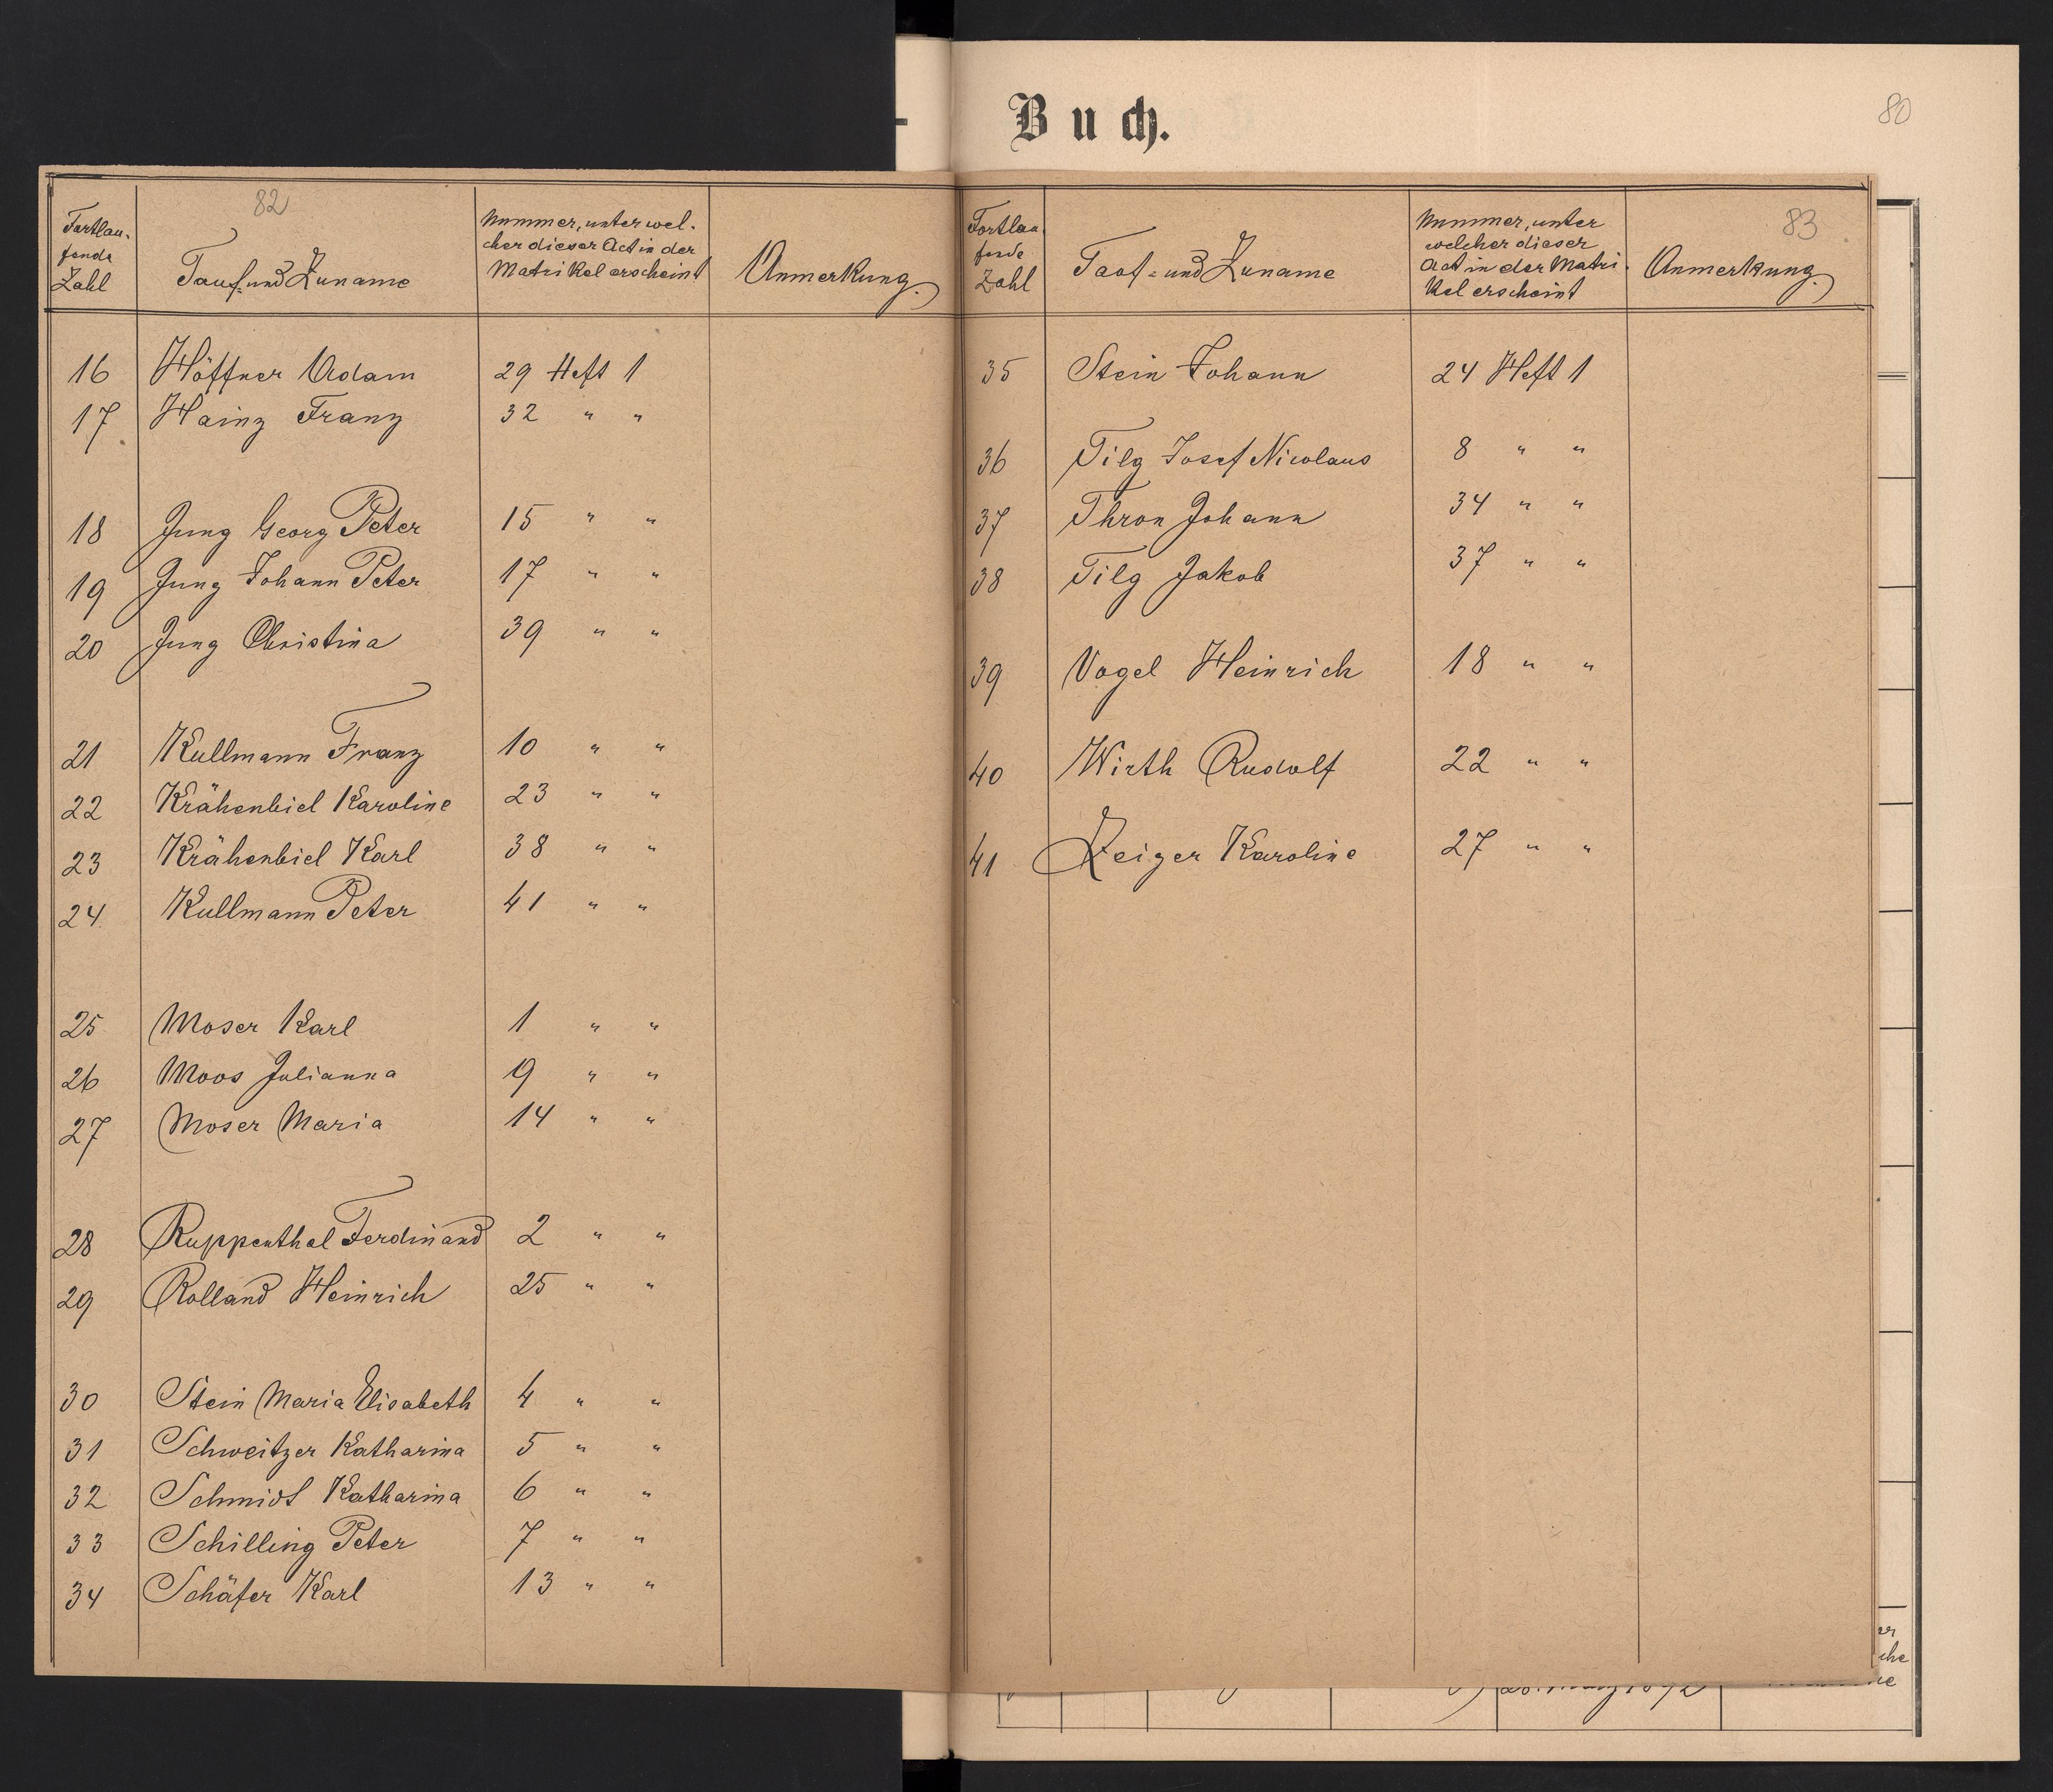 Buch.
80
82
Fortlau-
fende
Zahl
Tauf- und Zuname
Nummer, unter wel-
cher dieser Act in der
Matrikel erscheint
Anmerkung.
16 Höffner Adam 29 Heft 1
17 Hainz Franz 32 " "
18 Jung Georg Peter 15 " "
19 Jung Johann Peter 17 " "
20 Jung Christina 39 " "
21 Kullmann Franz 10 " "
22 Krähenbiel Karoline 23 " "
23 Krähenbiel Karl 38 " "
24 Kullmann Peter 41 " "
25 Moser Karl 1 " "
26 Moos Julianna 9 " "
27 Moser Maria 14 " "
28 Ruppenthal Ferdinand 2 " "
29 Rolland Heinrich 25 " "
30 Stein Maria Elisabeth 4 " "
31 Schweitzer Katharina 5 " "
32 Schmidt Katharina 6 " "
33 Schilling Peter 7 " "
34 Schäfer Karl 13 " "
83
Fortlau-
fende
Zahl
Tauf- und Zuname
Nummer, unter
welcher dieser
Act in der Matri-
kel erscheint
Anmerkung.
35 Stein Johann 24 Heft 1
36 Tilg Josef Nicolaus 8 " "
37 Thron Johann 34 " "
38 Tilg Jakob 37 " "
39 Vogel Heinrich 18 " "
40 Wirth Rudolf 22 " "
41 Zeiger Karoline 27 " "